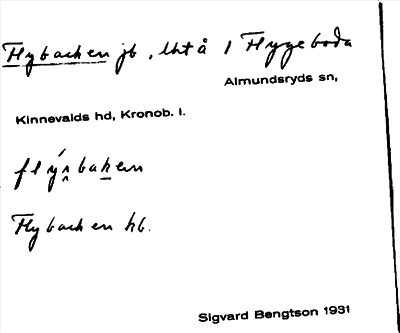 Flybacken jb, lht å 1 Flygeboda
Almundsryds sn,
Kinnevalds hd, Kronob. l.
flýn̂baḵen
Flybacken hb.
Sigvard Bengtson 1931